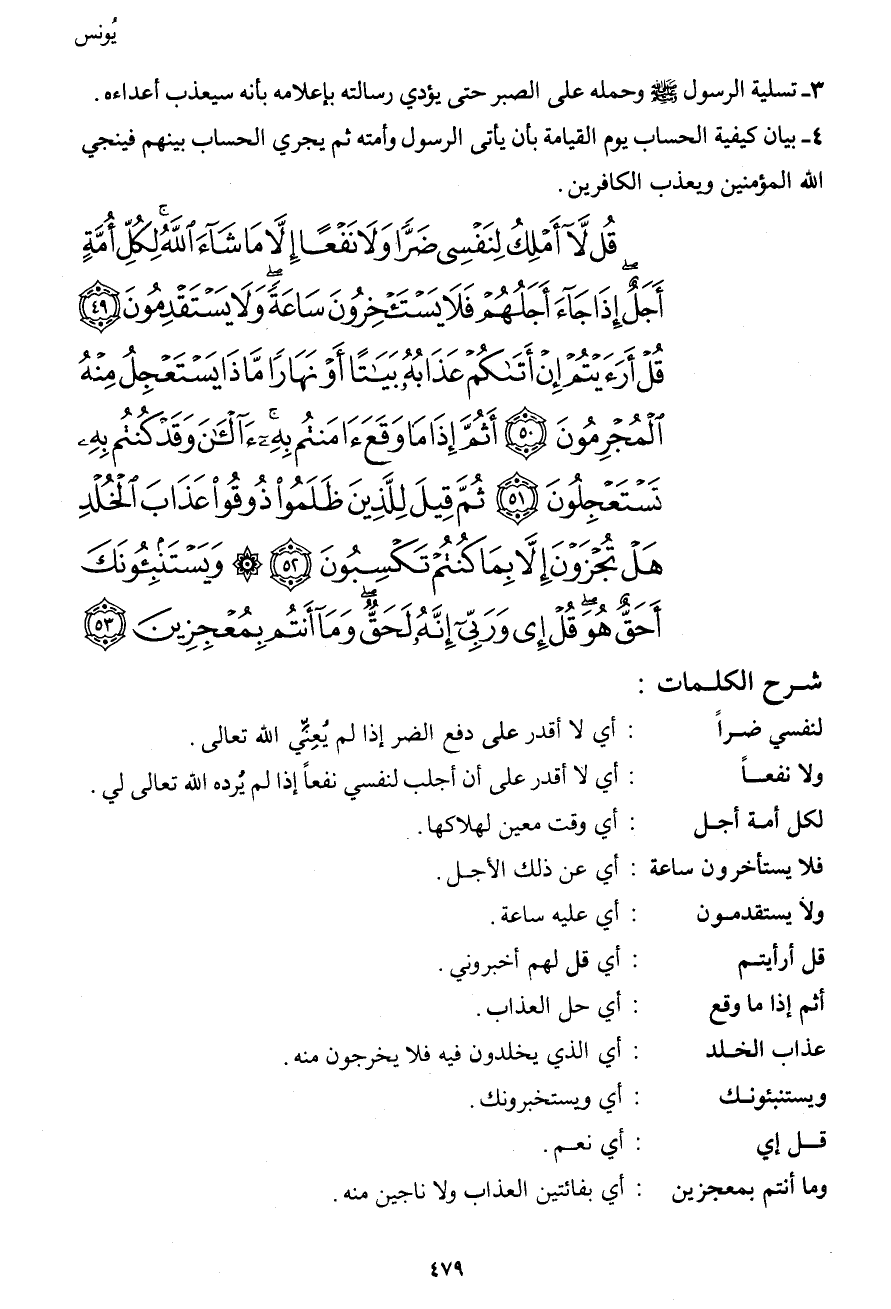 يُونس
٣ـ تسلية الرسول ﷺ وحمله على الصبر حتى يؤدي رسالته بإعلامه بأنه سيعذب أعداءه .
٤ـ بيان كيفية الحساب يوم القيامة بأن يأتى الرسول وأمته ثم يجري الحساب بينهم فينجي
الله المؤمنين ويعذب الكافرين .
قُل لَّآ أَمْلِكُ لِنَفْسِى ضَرًّا وَلَا نَفْعًا إِلَّا مَا شَآءَ ٱللَّهُ ۚ لِكُلِّ أُمَّةٍ
أَجَلٌ ۖ إِذَا جَآءَ أَجَلُهُمْ فَلَا يَسْتَـْٔخِرُونَ سَاعَةً ۖ وَلَا يَسْتَقْدِمُونَ ﴿٤٩﴾
قُلْ أَرَءَيْتُمْ إِنْ أَتَىٰكُمْ عَذَابُهُۥ بَيَـٰتًا أَوْ نَهَارًا مَّاذَا يَسْتَعْجِلُ مِنْهُ
ٱلْمُجْرِمُونَ ﴿٥٠﴾ أَثُمَّ إِذَا مَا وَقَعَ ءَامَنتُم بِهِۦٓ ۚ ءَآلْـَٔـٰنَ وَقَدْ كُنتُم بِهِۦ
تَسْتَعْجِلُونَ ﴿٥١﴾ ثُمَّ قِيلَ لِلَّذِينَ ظَلَمُوا۟ ذُوقُوا۟ عَذَابَ ٱلْخُلْدِ
هَلْ تُجْزَوْنَ إِلَّا بِمَا كُنتُمْ تَكْسِبُونَ ﴿٥٢﴾ ۞ وَيَسْتَنۢبِـُٔونَكَ
أَحَقٌّ هُوَ ۖ قُلْ إِى وَرَبِّىٓ إِنَّهُۥ لَحَقٌّ ۖ وَمَآ أَنتُم بِمُعْجِزِينَ ﴿٥٣﴾
شـرح الكلـمات :
لنفسي ضـراً : أي لا أقدر على دفع الضر إذا لم يُعِنِّي الله تعالى .
ولا نفعــاً : أي لا أقدر على أن أجلب لنفسي نفعاً إذا لم يُرده الله تعالى لي .
لكل أمـة أجـل : أي وقت معين لهلاكها .
فلا يستأخرون ساعة : أي عن ذلك الأجـل .
ولا يستقدمـون : أي عليه ساعة .
قل أرأيتـم : أي قل لهم أخبروني .
أثم إذا ما وقع : أي حل العذاب .
عذاب الخـلد : أي الذي يخلدون فيه فلا يخرجون منه .
ويستنبئونـك : أي ويستخبرونك .
قــل إي : أي نعـم .
وما أنتم بمعجزين : أي بفائتين العذاب ولا ناجين منه .
٤٧٩